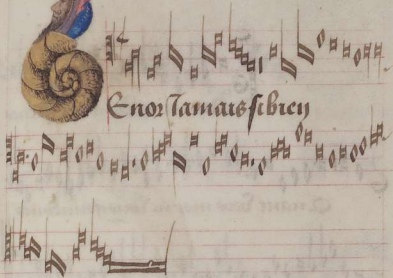 Tenor Jamais si bien